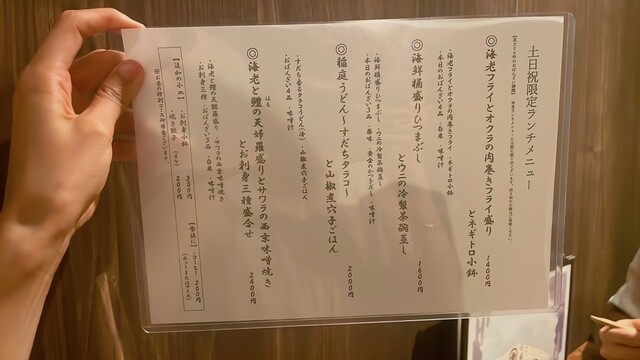 土日祝限定ランチメニュー
◎海老フライとオクラの肉巻きフライ盛り
とネギトロ小鉢 1400円
・海老フライとオクラの肉巻きフライ ・ネギトロ小鉢
・本日のおばんざい4品 ・白米 ・味噌汁
◎海鮮桶盛りひつまぶし
とウニの冷製茶碗蒸し 1600円
・海鮮桶盛りひつまぶし ・ウニの冷製茶碗蒸し
・本日のおばんざい4品 ・薬味 ・黄金のかつおだし ・味噌汁
◎稲庭うどん〜すだちタラコ〜
と山椒煮穴子ごはん 2000円
・すだち香るタラコうどん(冷) ・山椒煮穴子ごはん
・おばんざい4品 ・味噌汁
◎海老と鱧の天婦羅盛りとサワラの西京味噌焼き
はも
とお刺身三種盛合せ 2400円
・海老と鱧の天麩羅盛り ・サワラの西京味噌焼き
・お刺身三種 ・おばんざい3品 ・白米 ・味噌汁
【追加の小皿】 ・お刺身小鉢 350円
・焼き餃子(4ケ) 200円
【食後に】 ・コーヒー 200円
(ホットまたはアイス)